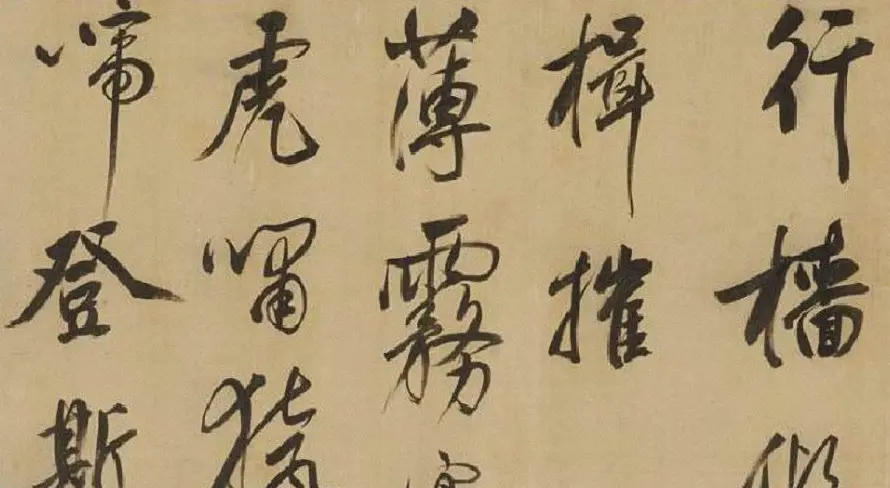 行檣
楫摧
薄霧
虎嘯猿
啼登斯